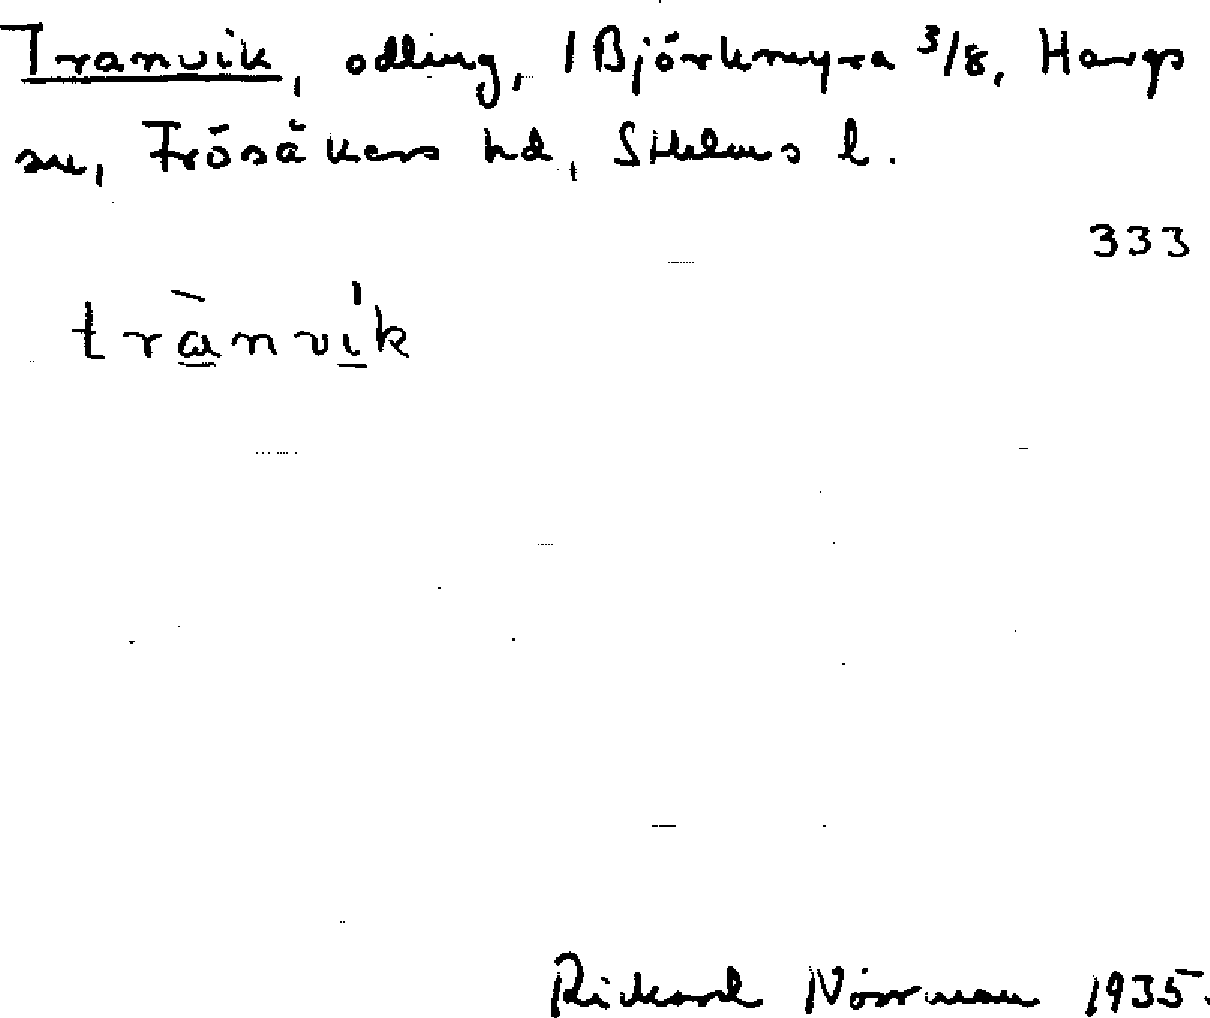 Tranvik, odling, 1 Björkmyra 3/8, Hargs
sn, Frösåkers hd, Sthlms l.
333
trànvi̍k
Rickard Norrman 1935.